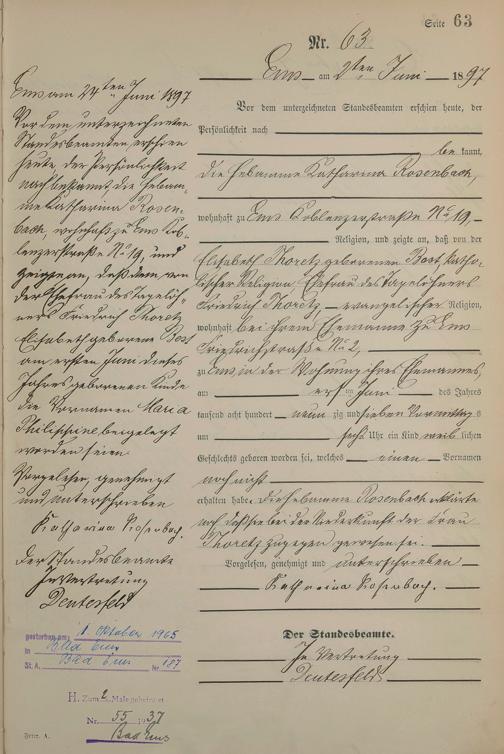 Seite 63
Nr. 63
Ems am 2ten Juni 1897
Vor dem unterzeichneten Standesbeamten erschien heute, der
Persönlichkeit nach
bekannt,
die Hebamme Katharina Rosenbach,
wohnhaft zu Ems Coblenzerstraße No 19,
Religion, und zeigte an, daß von der
Elisabeth Thoretz geborenen Bost, katho-
lischer Religion Ehefrau des Tagelöhners
Friedrich Thoretz, evangelischer Religion,
wohnhaft bei ihrem Ehemanne zu Ems
Friedrichstraße No 2,
zu Ems, in der Wohnung ihres Ehemannes,
am ersten Juni des Jahres
tausend acht hundert neunzig und sieben Vormittags
um sechs Uhr ein Kind weiblichen
Geschlechts geboren worden sei, welches einen Vornamen
noch nicht
erhalten habe. Die Hebamme Rosenbach erklärte
noch daß sie bei der Niederkunft der Frau
Thoretz zugegen gewesen sei.
Vorgelesen, genehmigt und unterschrieben
Katharina Rosenbach.
Der Standesbeamte.
In Vertretung
Deutesfeld
Ems am 24ten Juni 1897
Vor dem unterzeichneten
Standesbeamten erschien
heute, der Persönlichkeit
nach bekannt, die Hebam-
me Katharina Rosen-
bach wohnhaft zu Ems Cob-
lenzerstraße No 19, und
zeigte an, daß dem von
der Ehefrau des Tagelöh-
ners Friedrich Thoretz
Elisabeth geborene Bost
am ersten Juni dieses
Jahres geborenen Kinde
die Vornamen Maria
Philippine, beigelegt
worden seien.
Vorgelesen, genehmigt
und unterschrieben
Katharina Rosenbach.
Der Standesbeamte
In Vertretung
Deutesfeld
gestorben am 1. Oktober 1965
in Bad Ems
St. A. Bad Ems Nr 187
H. Zum 2. Male geheiratet
Nr. 55 1937
Bad Ems
Form. A.